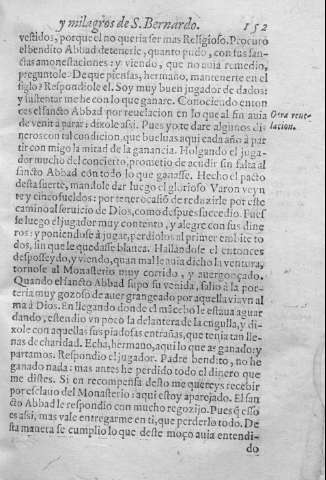 y milagros de S. Bernardo. 152
vestidos, porque el no queria ser mas Religioso. Procuro
el bendito Abbad detenerle, quanto pudo, con sus san-
ctas amonestaciones: y viendo, que no auia remedio,
preguntole. De que piensas, hermano, mantenerte en el
siglo? Respondiole el. Soy muy buen jugador de dados:
y sustentar me he con lo que ganare. Conociendo enton
ces el sancto Abbad por reuelacion en lo que al fin auia
de venir a parar; dixole assi. Pues yo te dare algunos di-
neros con tal condicion, que bueluas aqui cada año à par
tir con migo la mitad de la ganancia. Holgando el juga-
dor mucho del concierto, prometio de acudir sin falta al
sancto Abbad con todo lo que ganasse. Hecho el pacto
desta suerte, mandole dar luego el glorioso Varon veyn
te y cinco sueldos: por tener ocasiõ de reduzirle por este
camino al seruicio de Dios, como despues succedio. Fues
se luego el jugador muy contento, y alegre con sus dine
ros: y poniendose à jugar, perdiolos al primer embite to
dos, sin que le quedasse blanca. Hallandose el entonces
desposseydo, y viendo, quan mal le auia dicho la ventura,
tornose al Monasterio muy corrido, y auergonçado.
Quando el sancto Abbad supo su venida, salio à la por-
teria muy gozoso de auer grangeado por aquella via vn al
ma à Dios. En llegando donde el mãcebo le estaua aguar
dando, estendio vn poco la delantera de la cugulla, y di-
xole con aquellas sus piadosas entrañas, que tenia tan lle-
nas de charidad. Echa, hermano, aqui lo que as ganado: y
partamos. Respondio el jugador. Padre bendito, no he
ganado nada: mas antes he perdido todo el dinero que
me distes. Si en recompensa desto me quereys recebir
por esclauo del Monasterio: aqui estoy aparejado. El san
cto Abbad le respondio con mucho regozijo. Pues q̃ esso
es assi, mas vale entregarme en ti, que perderlo todo. De
sta manera se cumplio lo que deste moço auia entendi-
do
Otra reue-
lacion.